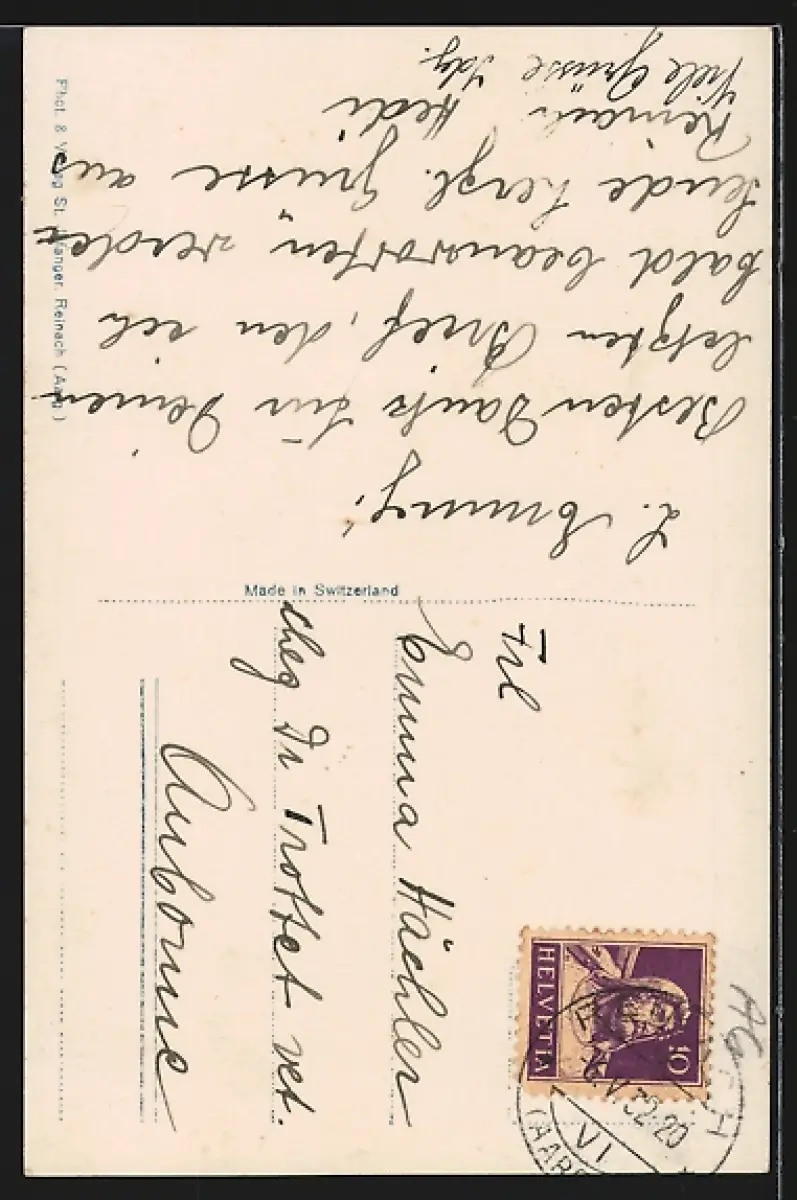 L. Emmy,
Besten Dank für Deinen
letzten Brief, den ich
bald beantworten werde
sende herzl. Grüsse aus
Reinach Hedi
Viele Grüsse Idy.
Phot. & Verlag St. Reinach (Aarg.)
Made in Switzerland
Frl
Emma Hächler
cheg Dr Trottet vet.
Aubonne
HELVETIA
10
V 32-20
VI